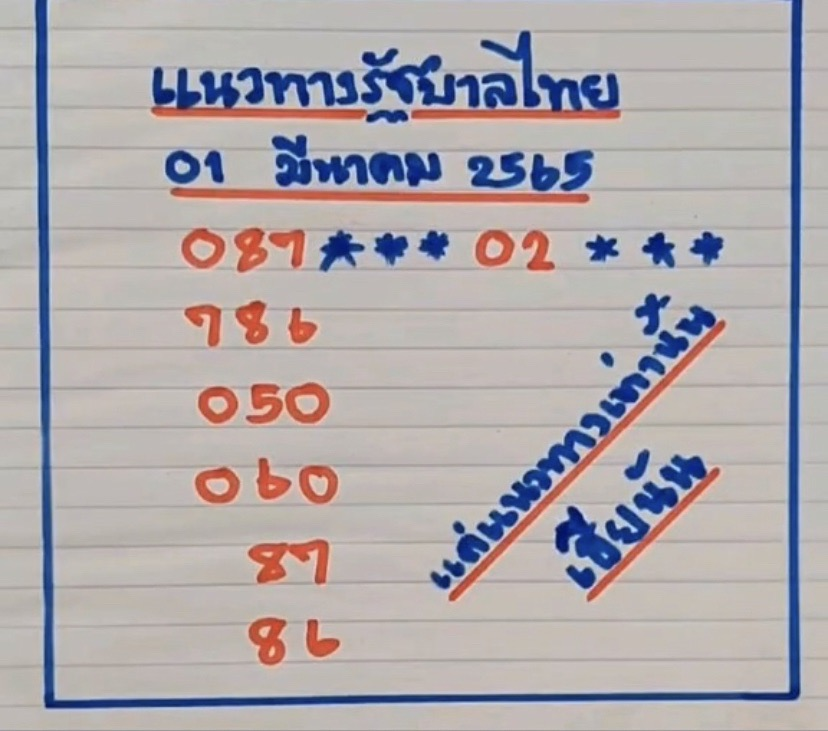 แนวทางรัฐบาลไทย
01 มีนาคม 2565
087*** 02 ***
786
050
060
87
86
แค่แนวทางเท่านั้น
เซียนัน